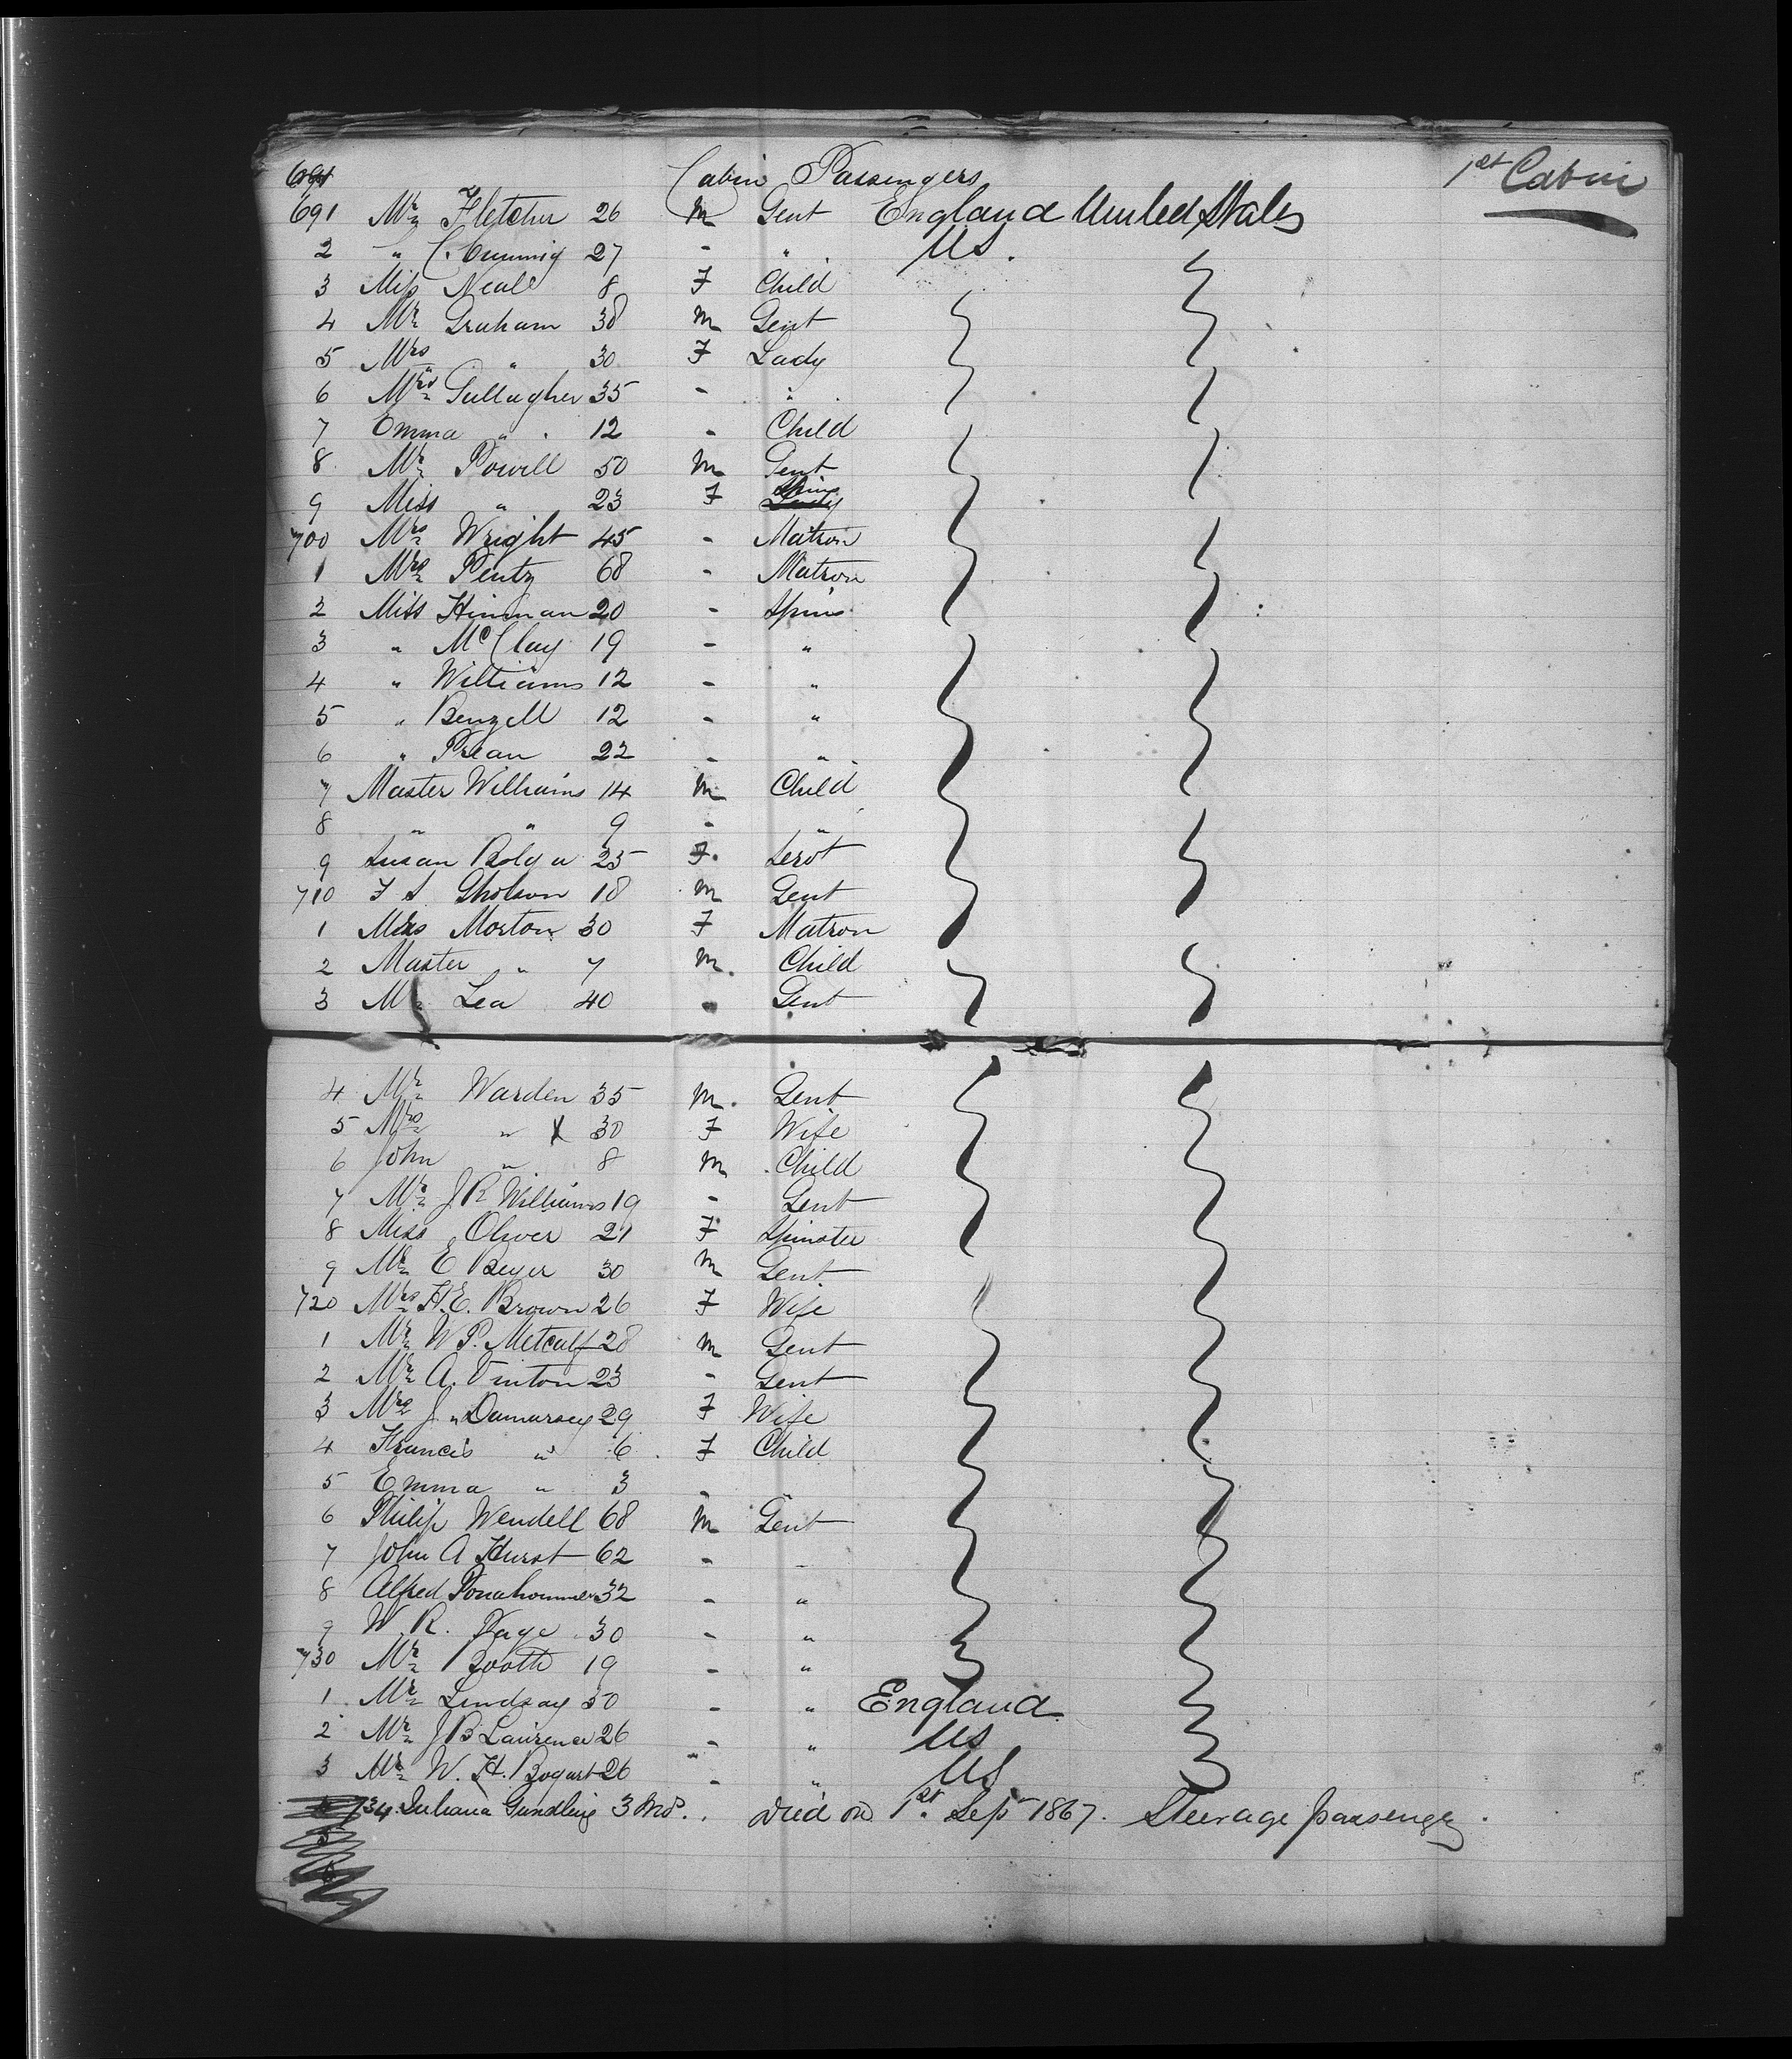 Cabin Passengers 1st Cabin
691 Mr Fletcher 26 M Gent England United States
2 " C. Cumming 27 - " US.
3 Miss Neall 8 F Child
4 Mr Graham 38 M Gent
5 Mrs " 30 F Lady
6 Mrs Gallagher 35 - "
7 Emma " 12 - Child
8 Mr Powell 50 M Gent
9 Miss " 23 F Spins
700 Mrs Wright 45 - Matron
1 Mrs Pentz 68 - Matron
2 Miss Hinman 20 - Spins
3 " McClay 19 - "
4 " Williams 12 - "
5 " Benzell 12 - "
6 " 22 - "
7 Master Williams 14 M Child
8 " " 9 - "
9 Susan 25 F. Servt
710 F S Gholson 18 M Gent
1 Mrs Morton 30 F Matron
2 Master " 7 M. Child
3 Mr Lea 40 - Gent
4 Mr Warden 35 M. Gent
5 Mrs " X 30 F Wife
6 John " 8 M. Child
7 Mr J R Williams 19 - Gent
8 Miss Oliver 21 F Spinster
9 Mr E Beyer 30 M Gent
720 Mrs H. E. Brown 26 F Wife
1 Mr W P. Metcalf 28 M Gent
2 Mr A. Vinton 23 - Gent
3 Mrs J. Damarsey 29 F Wife
4 Francis " 6 F Child
5 Emma " 3 - "
6 Philip Wendell 68 M Gent
7 John A Hurst 62 - -
8 Alfred 32 - "
9 W. R. Page 30 - "
730 Mr Booth 19 - "
1 Mr Lindsay 50 - " England
2 Mr J B Laurence 26 - " US
3 Mr W. H. Bogart 26 - " US
734 Juliana Gundling 3 Mos. Died on 1st Sep 1867. Steerage passenger.